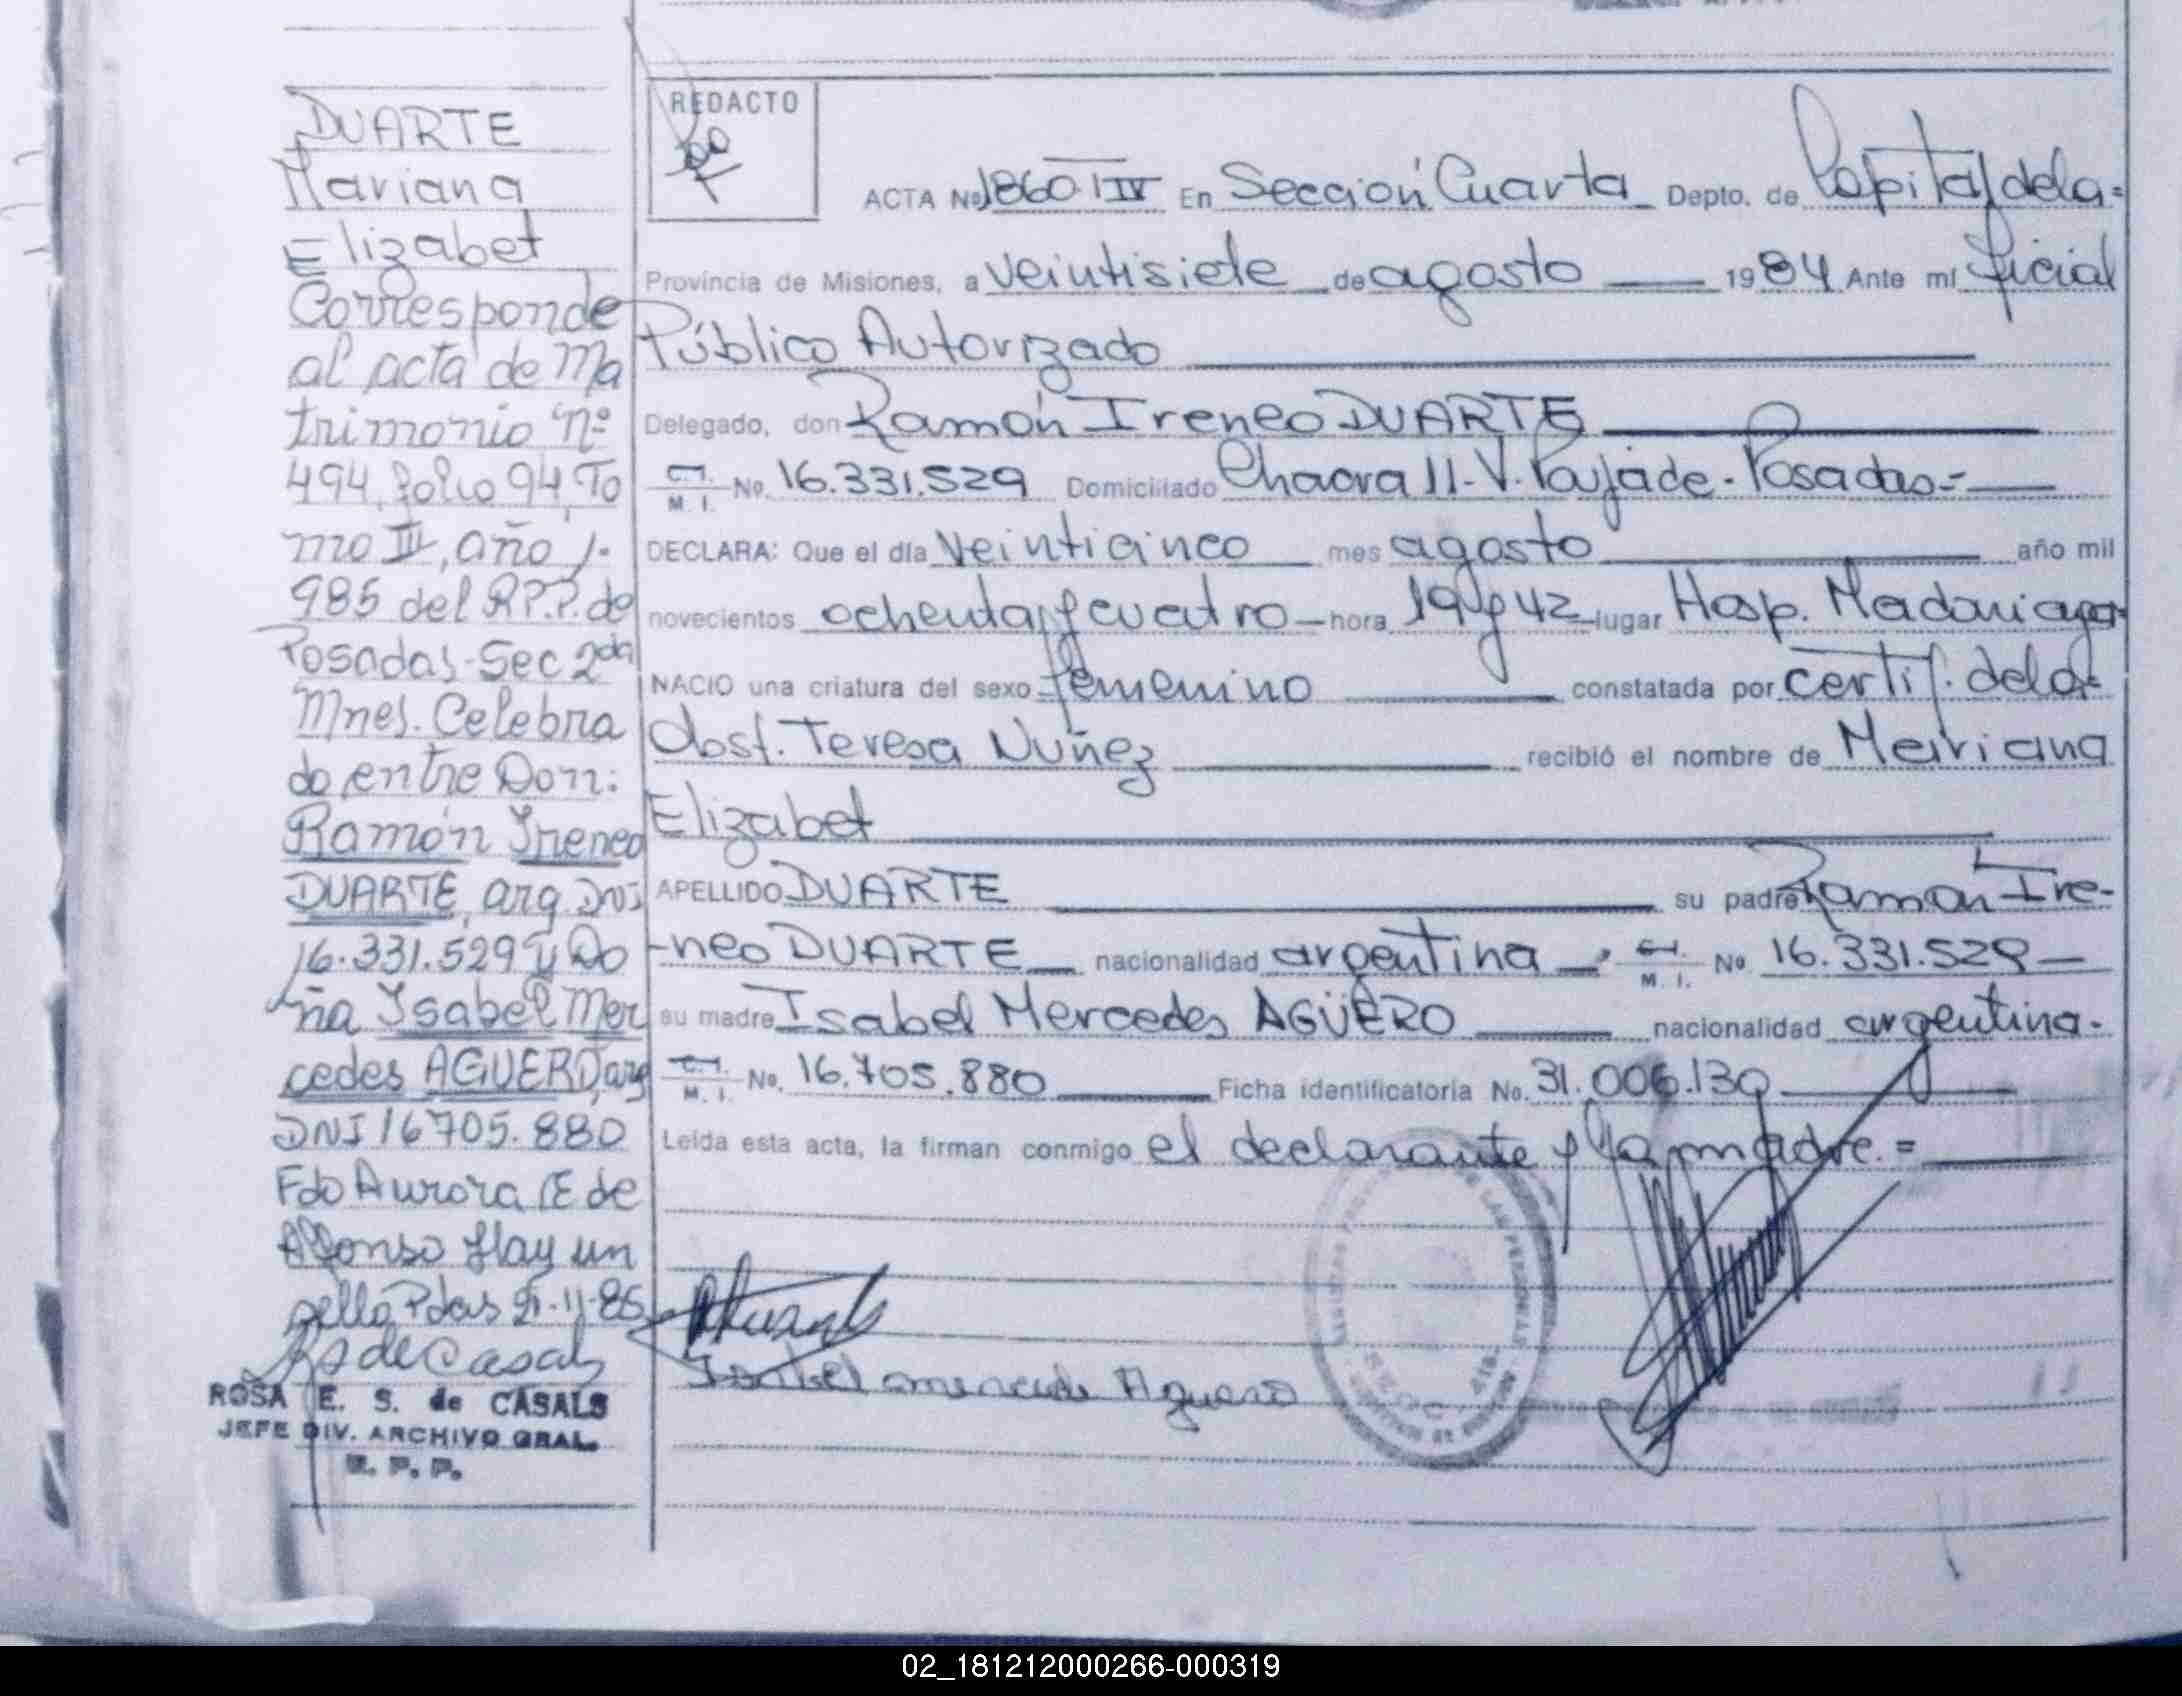 DUARTE
Mariana
Elizabet
Corresponde
al acta de Ma
trimonio Nº
494, folio 94, To
mo III, año 1.
985 del R.P.P. de
Posadas-Sec 2da
Mnes. Celebra
do entre Don:
Ramón Ireneo
DUARTE, arg. DNI
16.331.529 y Do
ña Isabel Mer
cedes AGUERO, arg
DNI 16705.880
Fdo Aurora E de
Alfonso Hay un
sello Pdas 21-11-86
RS de Casals
ROSA E. S. de CASALS
JEFE DIV. ARCHIVO GRAL.
R. P. P.
REDACTO
ACTA Nº 1860 T IV En Sección Cuarta Depto. de Capital de la=
Provincia de Misiones, a veintisiete de agosto 1984 Ante mí Oficial
Público Autorizado
Delegado, don Ramón Ireneo DUARTE
C.I. M. I. No. 16.331.529 Domiciliado Chacra 11-V. Poujade-Posadas=
DECLARA: Que el día Veinticinco mes agosto año mil
novecientos ochenta y cuatro hora 19 y 42 lugar Hosp. Madariaga
NACIO una criatura del sexo femenino constatada por certif. de la
Obst. Teresa Nuñez recibió el nombre de Mariana
Elizabet
APELLIDO DUARTE su padre Ramón Ire-
-neo DUARTE nacionalidad argentina C.I. M. I. No 16.331.529
su madre Isabel Mercedes AGÜERO nacionalidad argentina.
C.I. M. I. No. 16.705.880 Ficha identificatoria No. 31.006.130
Leída esta acta, la firman conmigo el declarante y la madre.=
RDuarte
Isabel mercede Aguero
02_181212000266-000319